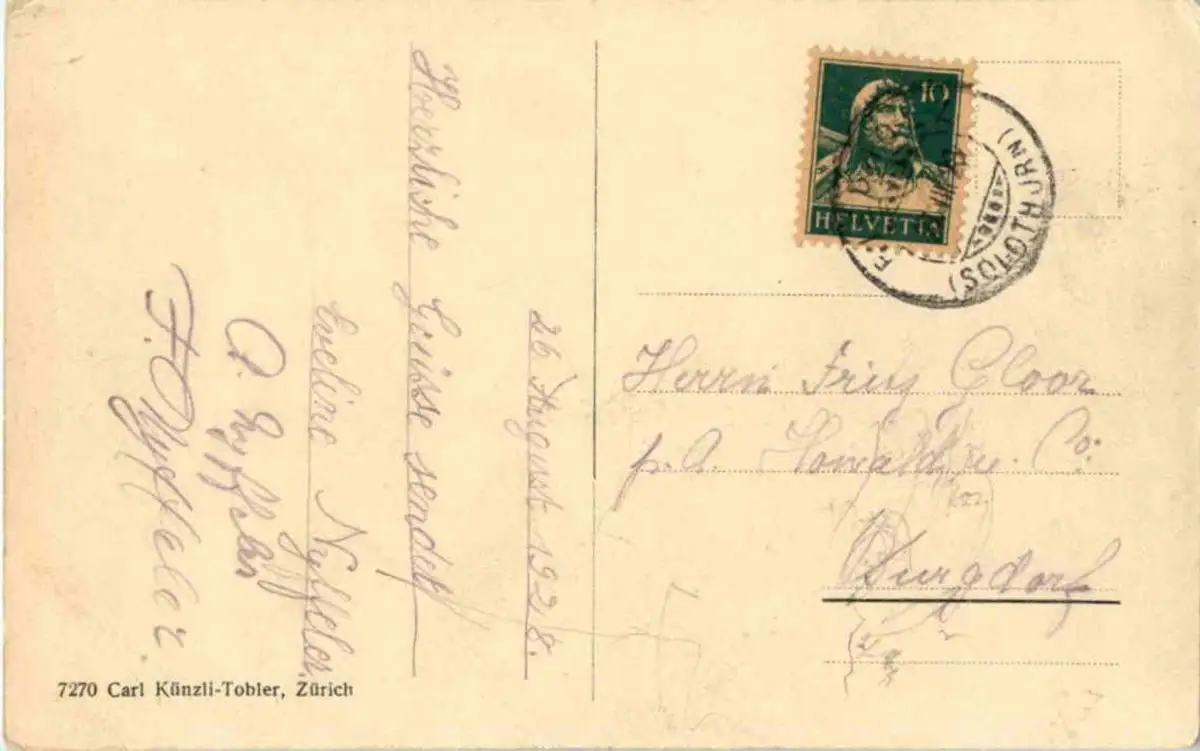 26 August 1928.
Herzliche Grüsse sendet
Eveline Nyffeler.
F. Nyffeler
7270 Carl Künzli-Tobler, Zürich
10
HELVETIA
(SOLOTHURN)
Herrn Fritz Gloor
p. A. Howald u. Co:
Burgdorf